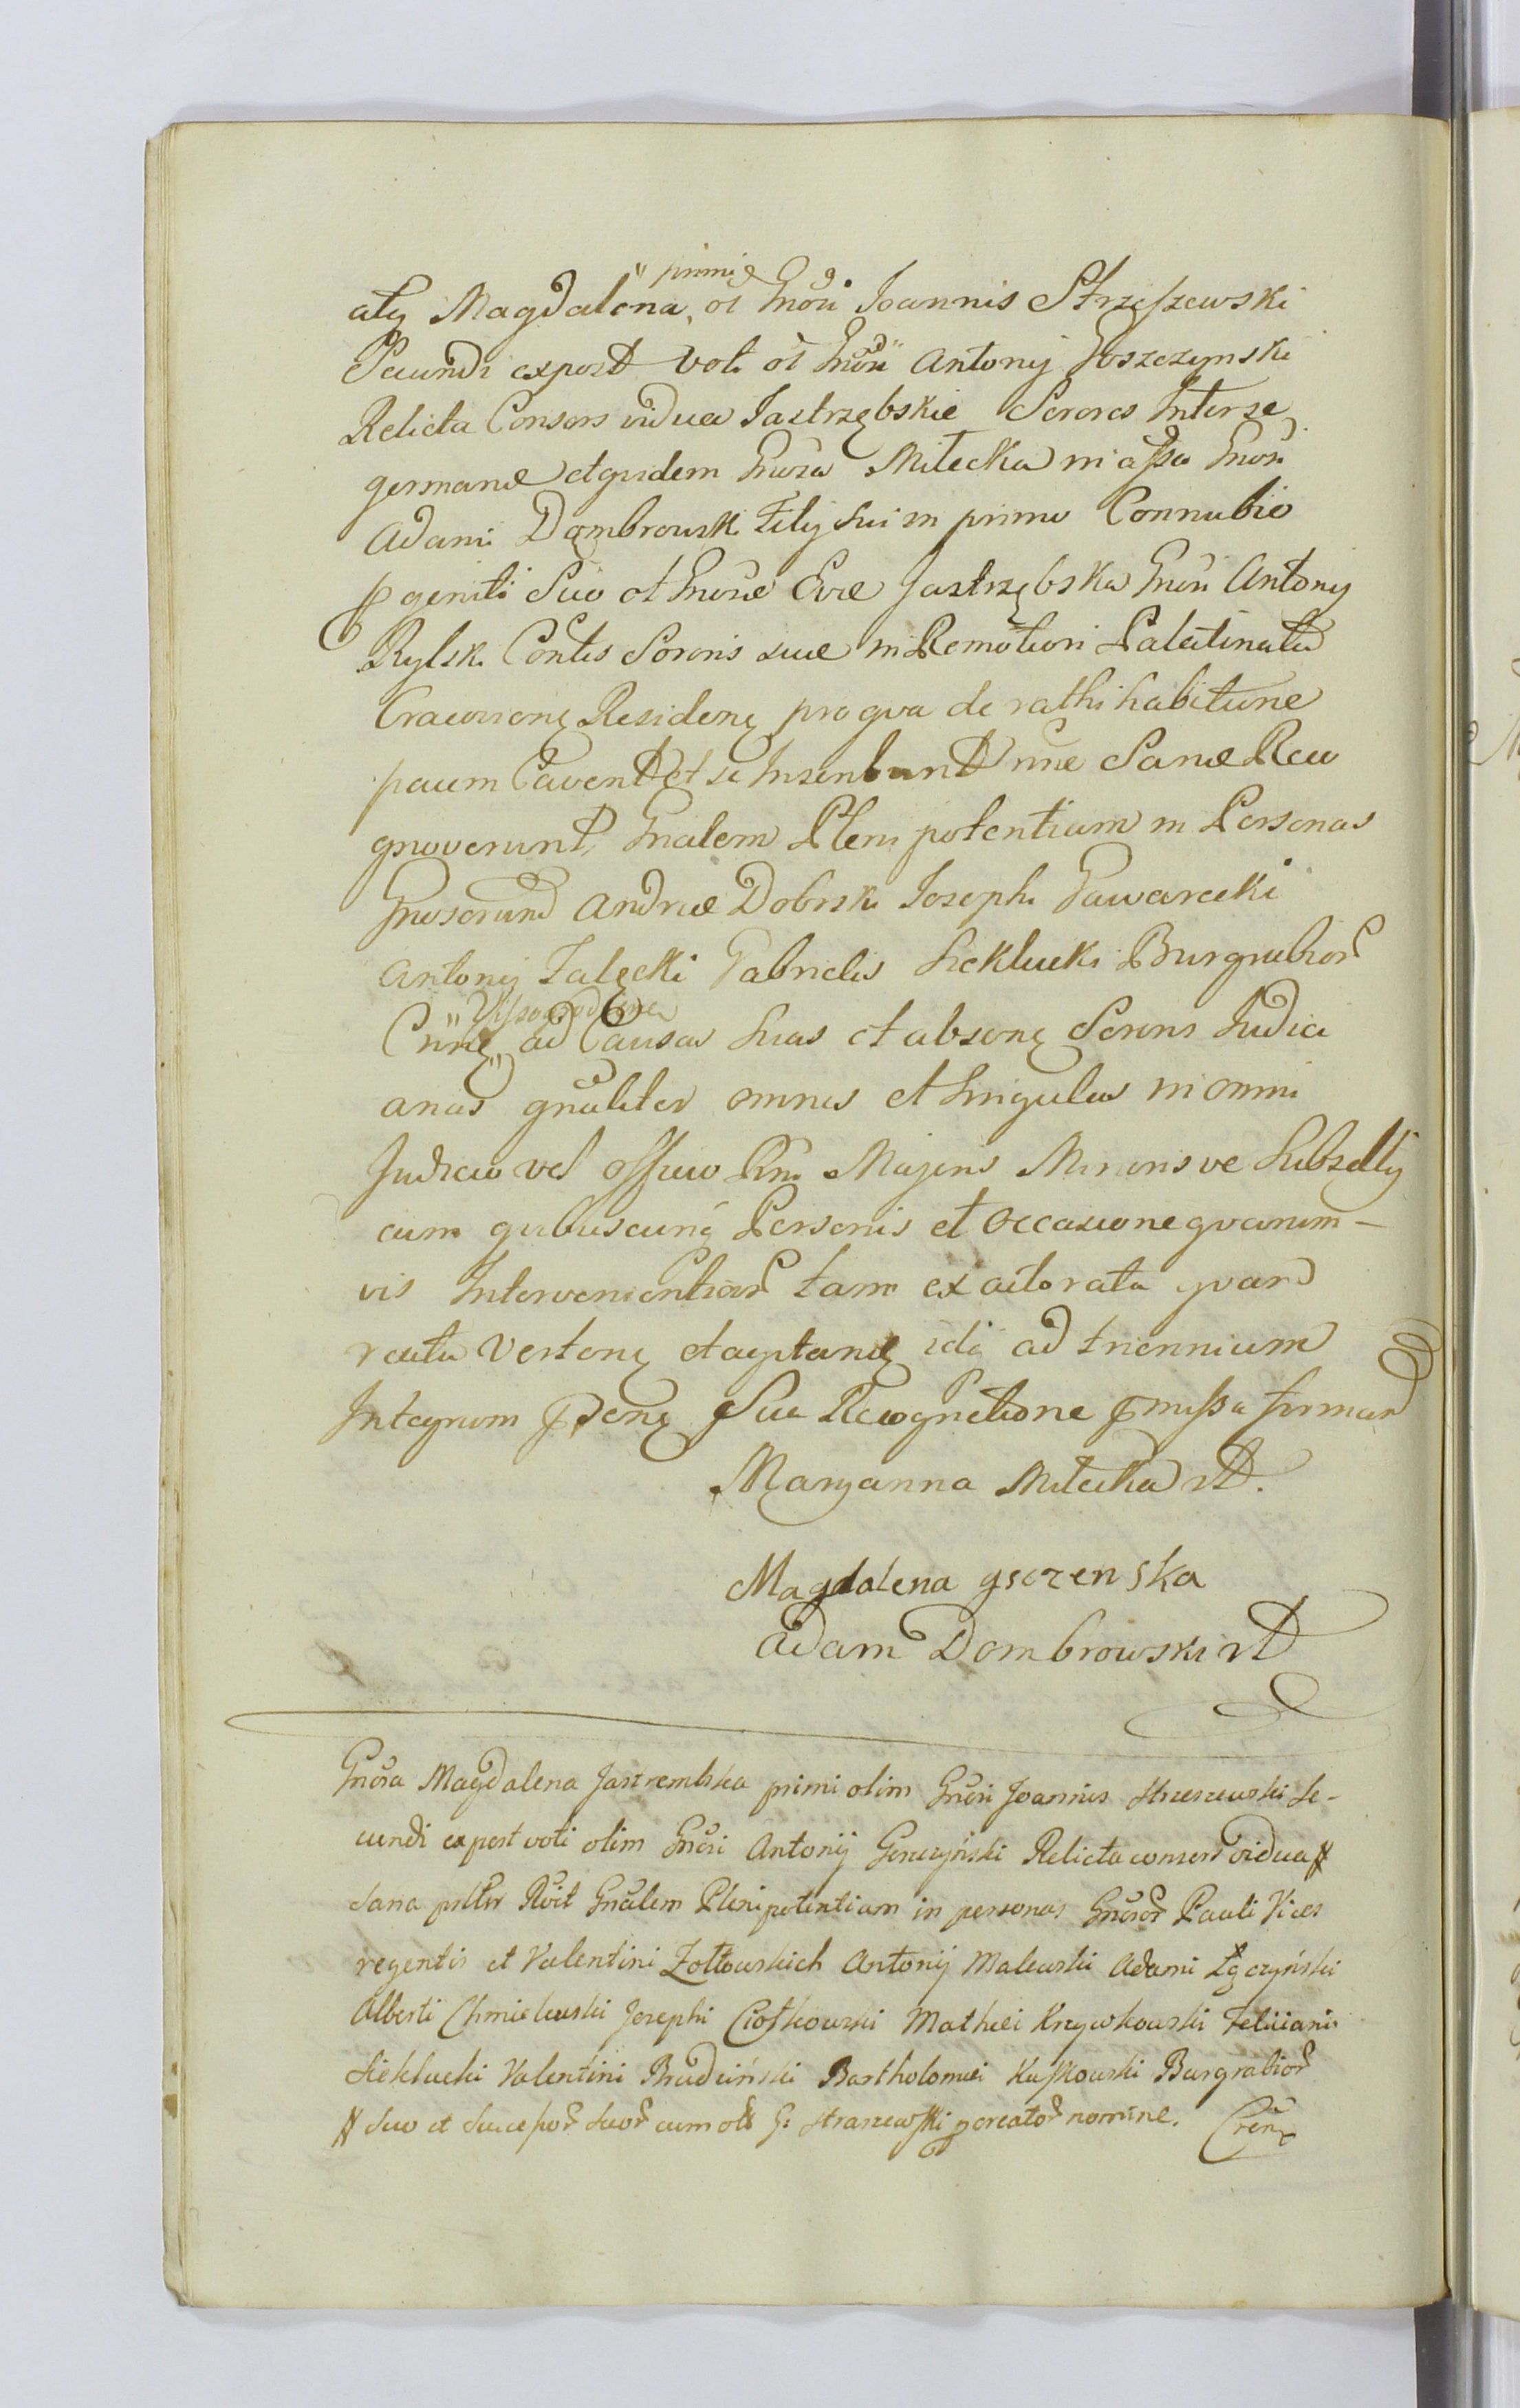 aty Magdalena, "primi ol Gnosi Joannis Strzeszewski
Secundi expost Voti ol Gnosi Antonij Goszczynski
Relicta Consors vidua Jastrzębskie Sorores Inter se
germanae et quidem Gnosa Milecka in assa Gnosi
Adami Dąmbrowski Filij sui in primo Connubio
pgeniti Suo et Gnosae Evae Jastrzębska Gnosi Antonij
Rylski Contis Sororis suae in Remotiori Palatinatu
Cracovienę Residenę pro qva de rathihabitione
pacum Cavent et se Inscribunt nne Sanae Reco
gnoverunt, Gnalem Pleni potentiam in Personas
Gnosorum Andreae Dobrski Josephi Gawarecki
Antonij Zalęcki Gabrielis Sieklucki Burgrabior
Cnnę "Vissogrodiens ad Causas Suas et absenę Sororis Judici
arias gnaliter omnes et Singulas in omni
Judicio vel officio Rni Majoris Minoris ve Subsellij
cum qvibuscunq Personis et Occasione qvarum-
vis Intervenientior tam ex actoratu qvam
reatu Vertenę et agitanę idq ad triennium
Integrum pdenę Sua Recognitione pmissa firman
Maryanna Milecka M
Magdalena gsczenska
Adam Dombrowski M
Gnosa Magdalena Jastrembska primi olim Gnosi Joannis Strzeszewski Se-
cundi expost voti olim Gnosi Antonij Gosczyński Relicta consors vidua #
Sana psltr Rvit Gnalem Plenipotentiam in personas Gnosor Pauli Vices
regentis et Valentini Zołtowskich Antonij Malewski Adami Łączyński
Alberti Chmielewski Josephi Ciołkowski Mathei Krzywkowski Feliciani
Sieklucki Valentini Brudziński Bartholomei Kuskowski Burgrabior
# Suo et Succesor Suor cum olt G: Straszewski pcreator nomine. Crenę